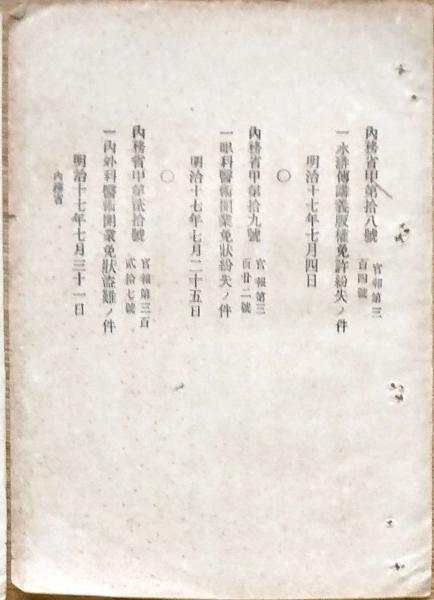 內務省甲第拾八號 官報第三百四號
一水滸傳講義版權免許紛失ノ件
明治十七年七月四日
〇
內務省甲第拾九號 官報第三百廿二號
一眼科醫術開業免狀紛失ノ件
明治十七年七月二十五日
〇
內務省甲第貳拾號 官報第三百貳拾七號
一內外科醫術開業免狀盜難ノ件
明治十七年七月三十一日
內務省